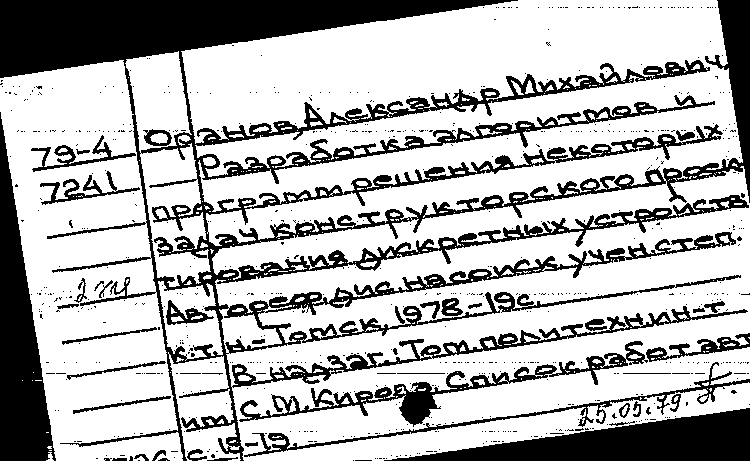 79-4 Оранов, Александр Михайлович.
7241 Разработка алгоритмов и
программ решения некоторых
задач конструкторского проек
тирования дискретных устройств.
Автореф. дис. на соиск. учен. степ.
к.т.н. - Томск, 1978. - 19 с.
В надзаг.: Том. политехн. ин-т
им. С. М. Кирова. Список работ авт
с. 18-19.
25.05.79.